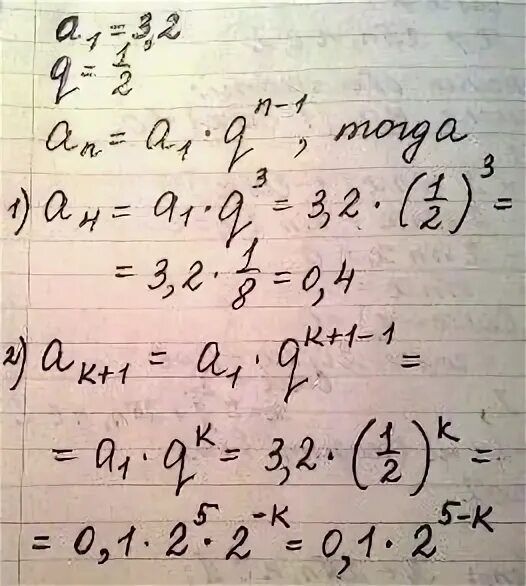 a₁ = 3,2
q = 1/2
aₙ = a₁ · qⁿ⁻¹, тогда
1) a₄ = a₁ · q³ = 3,2 · (1/2)³ =
= 3,2 · 1/8 = 0,4
2) aₖ₊₁ = a₁ · qᵏ⁺¹⁻¹ =
= a₁ · qᵏ = 3,2 · (1/2)ᵏ =
= 0,1 · 2⁵ · 2⁻ᵏ = 0,1 · 2⁵⁻ᵏ